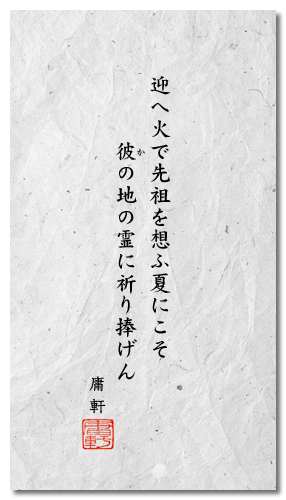 迎へ火で先祖を想ふ夏にこそ
彼の地の霊に祈り捧げん
か
庸軒